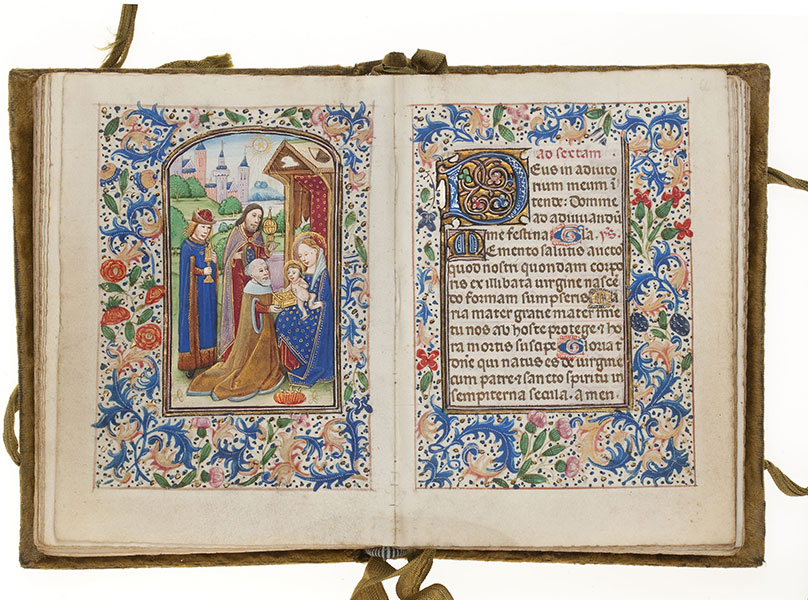 ad sextam
Deus in adiuto
rium meum ī
tende: Domine
ad adiuuandū
me festina Gl̄a. p̄s.
Memento salutis aucto
quod nostri quondam corpo
ris ex illibata virgine nascē
do formam sumpseris Ma
ria mater gratie mater mīe
tu nos ab hoste protege ⁊ ho
ra mortis suscipe Gloria t
dn̄e qui natus es de virgine
cum patre ⁊ sancto spiritu ī
sempiterna secula. amen.